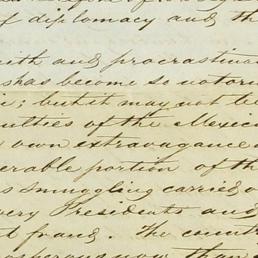 of diplomacy and th
ith and procrastina
has become so notori
; but it may not be
ulties of the Mexica
own extravagance
erable portion of th
s smuggling carried o
very Presidents and
t fraud. The count
osperous now than